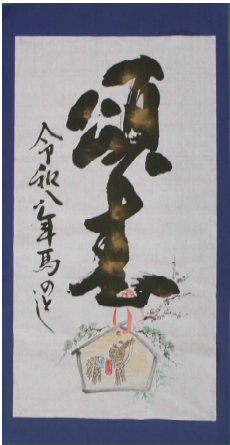 頌春
令和八年馬のとし